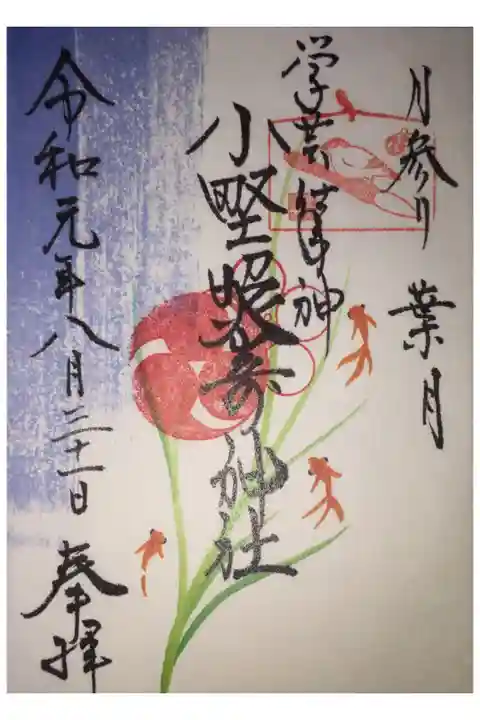 月参り 葉月
学芸神
小野照崎神社
令和元年八月三十一日 奉拝